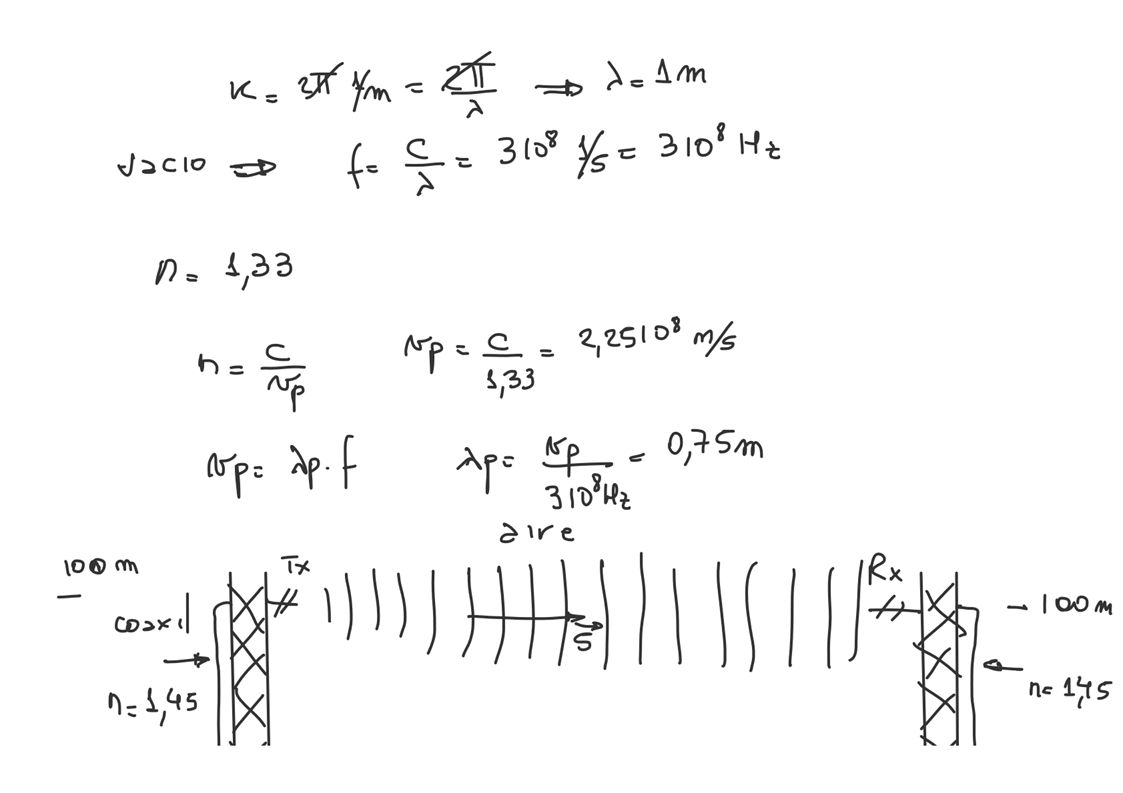 K = 2π 1/m = 2π/λ ⇒ λ = 1m
vacío ⇒ f = c/λ = 3 10⁸ 1/s = 3 10⁸ Hz
n = 1,33
n = c/vp vp = c/1,33 = 2,25 10⁸ m/s
vp = λp · f λp = vp/3 10⁸ Hz = 0,75m
aire
100 m Tx Rx - 100 m
coaxil S
n = 1,45 n = 1,45